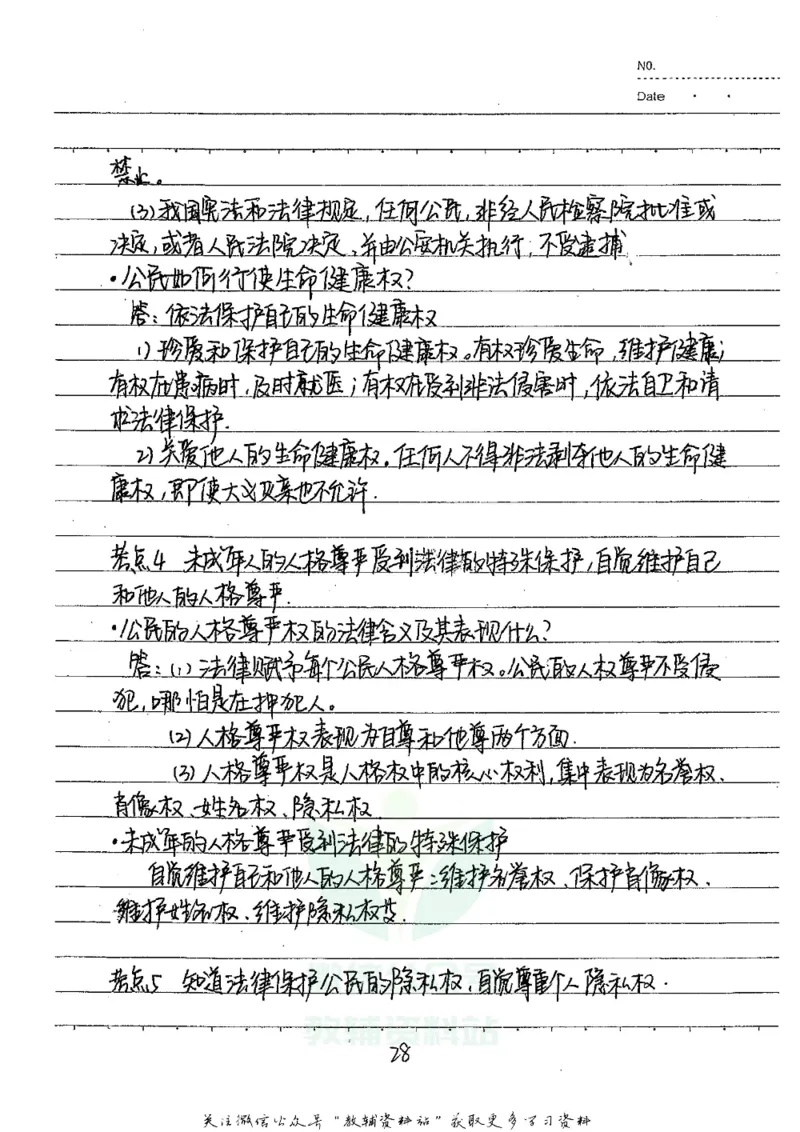 NO.
Date
禁止。
(3)我国宪法和法律规定,任何公民,非经人民检察院批准或
决定,或者人民法院决定、并由公安机关执行,不受逮捕
·公民如何行使生命健康权?
答:依法保护自己的生命健康权
1)珍爱和保护自己的生命健康权。有权珍爱生命,维护健康;
有权在患病时,及时就医;有权在受到非法侵害时,依法自卫和请
求法律保护.
2)关爱他人的生命健康权。任何人不得非法剥夺他人的生命健
康权,即使大义灭亲也不允许.
考点4 未成年人的人格尊严受到法律的特殊保护,自觉维护自己
和他人的人格尊严.
·公民的人格尊严权的法律含义及其表现什么?
答:(1)法律赋予每个公民人格尊严权。公民的人权尊严不受侵
犯,哪怕是在押犯人。
(2)人格尊严权表现为自尊和他尊两个方面.
(3)人格尊严权是人格权中的核心权利,集中表现为名誉权、
肖像权、姓名权、隐私权.
·未成年的人格尊严受到法律的特殊保护
自觉维护自己和他人的人格尊严:维护名誉权、保护肖像权、
维护姓名权、维护隐私权等.
考点5 知道法律保护公民的隐私权,自觉尊重个人隐私权.
教辅资料站
28
关注微信公众号"教辅资料站"获取更多学习资料